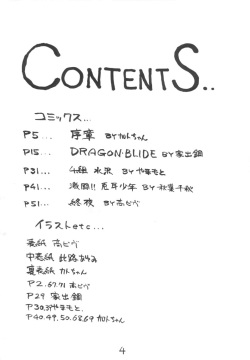 CONTENTS..
コミックス...
P5... 序章 BY かトちゃん
P15... DRAGON・BLIDE BY 家出鋼
P31... 4組 水沢 BY やまもと
P41... 激闘!! 厄年少年 BY 秋葉千秋
P51... 終夜 BY 高ビベ
イラストetc...
表紙 高ビベ
中表紙 此路あゆみ
裏表紙 かトちゃん
P2.67.71 高ビベ
P29 家出鋼
P30.39 やまもと.
P40.49.50.68.69 かトちゃん
4